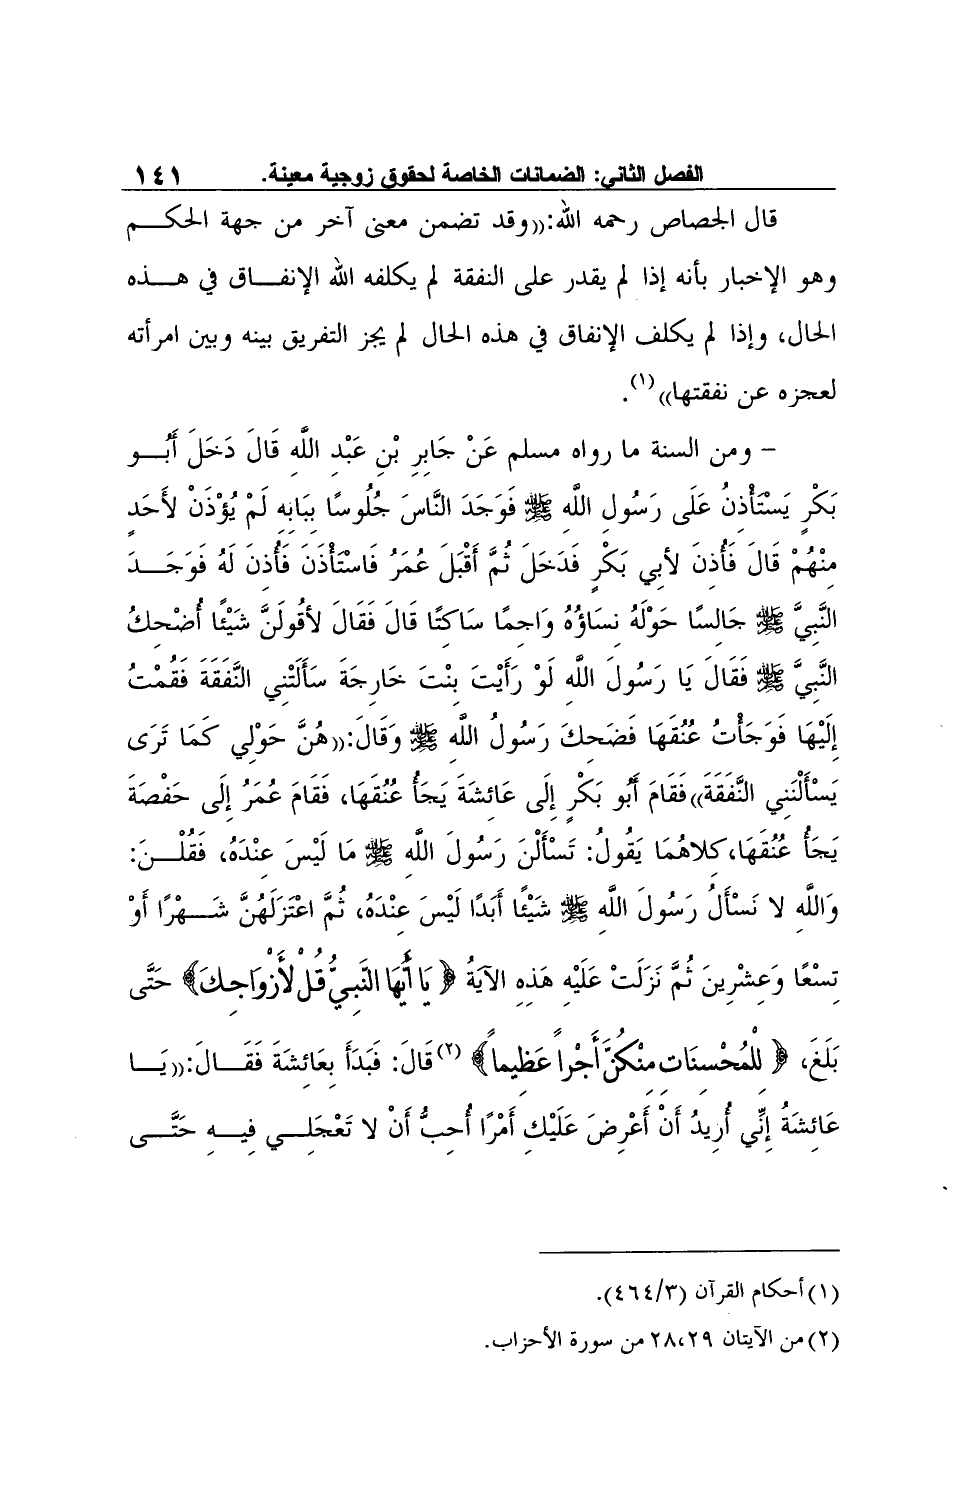 الفصل الثاني: الضمانات الخاصة لحقوق زوجية معينة. ١٤١
قال الجصاص رحمه الله:((وقد تضمن معنى آخر من جهة الحكم
وهو الإخبار بأنه إذا لم يقدر على النفقة لم يكلفه الله الإنفاق في هذه
الحال، وإذا لم يكلف الإنفاق في هذه الحال لم يجز التفريق بينه وبين امرأته
لعجزه عن نفقتها))(١).
– ومن السنة ما رواه مسلم عَنْ جَابِرِ بْنِ عَبْدِ اللَّهِ قَالَ دَخَلَ أَبُو
بَكْرٍ يَسْتَأْذِنُ عَلَى رَسُولِ اللَّهِ ﷺ فَوَجَدَ النَّاسَ جُلُوسًا بِبَابِهِ لَمْ يُؤْذَنْ لأَحَدٍ
مِنْهُمْ قَالَ فَأُذِنَ لأبِي بَكْرٍ فَدَخَلَ ثُمَّ أَقْبَلَ عُمَرُ فَاسْتَأْذَنَ فَأُذِنَ لَهُ فَوَجَدَ
النَّبِيَّ ﷺ جَالِسًا حَوْلَهُ نِسَاؤُهُ وَاجِمًا سَاكِتًا قَالَ فَقَالَ لأقُولَنَّ شَيْئًا أُضْحِكُ
النَّبِيَّ ﷺ فَقَالَ يَا رَسُولَ اللَّهِ لَوْ رَأَيْتَ بِنْتَ خَارِجَةَ سَأَلَتْنِي النَّفَقَةَ فَقُمْتُ
إِلَيْهَا فَوَجَأْتُ عُنُقَهَا فَضَحِكَ رَسُولُ اللَّهِ ﷺ وَقَالَ:((هُنَّ حَوْلِي كَمَا تَرَى
يَسْأَلْنَنِي النَّفَقَةَ))فَقَامَ أَبُو بَكْرٍ إِلَى عَائِشَةَ يَجَأُ عُنُقَهَا، فَقَامَ عُمَرُ إِلَى حَفْصَةَ
يَجَأُ عُنُقَهَا،كِلاهُمَا يَقُولُ: تَسْأَلْنَ رَسُولَ اللَّهِ ﷺ مَا لَيْسَ عِنْدَهُ، فَقُلْنَ:
وَاللَّهِ لا نَسْأَلُ رَسُولَ اللَّهِ ﷺ شَيْئًا أَبَدًا لَيْسَ عِنْدَهُ، ثُمَّ اعْتَزَلَهُنَّ شَهْرًا أَوْ
تِسْعًا وَعِشْرِينَ ثُمَّ نَزَلَتْ عَلَيْهِ هَذِهِ الآيَةُ ﴿ يَا أَيُّهَا النَّبِيُّ قُل لأَزْوَاجِكَ﴾ حَتَّى
بَلَغَ، ﴿ لِلْمُحْسِنَاتِ مِنْكُنَّ أَجْراً عَظِيماً﴾ (٢) قَالَ: فَبَدَأَ بِعَائِشَةَ فَقَالَ:((يَا
عَائِشَةُ إِنِّي أُرِيدُ أَنْ أَعْرِضَ عَلَيْكِ أَمْرًا أُحِبُّ أَنْ لا تَعْجَلِي فِيهِ حَتَّى
(١) أحكام القرآن (٤٦٤/٣).
(٢) من الآيتان ٢٨،٢٩ من سورة الأحزاب.